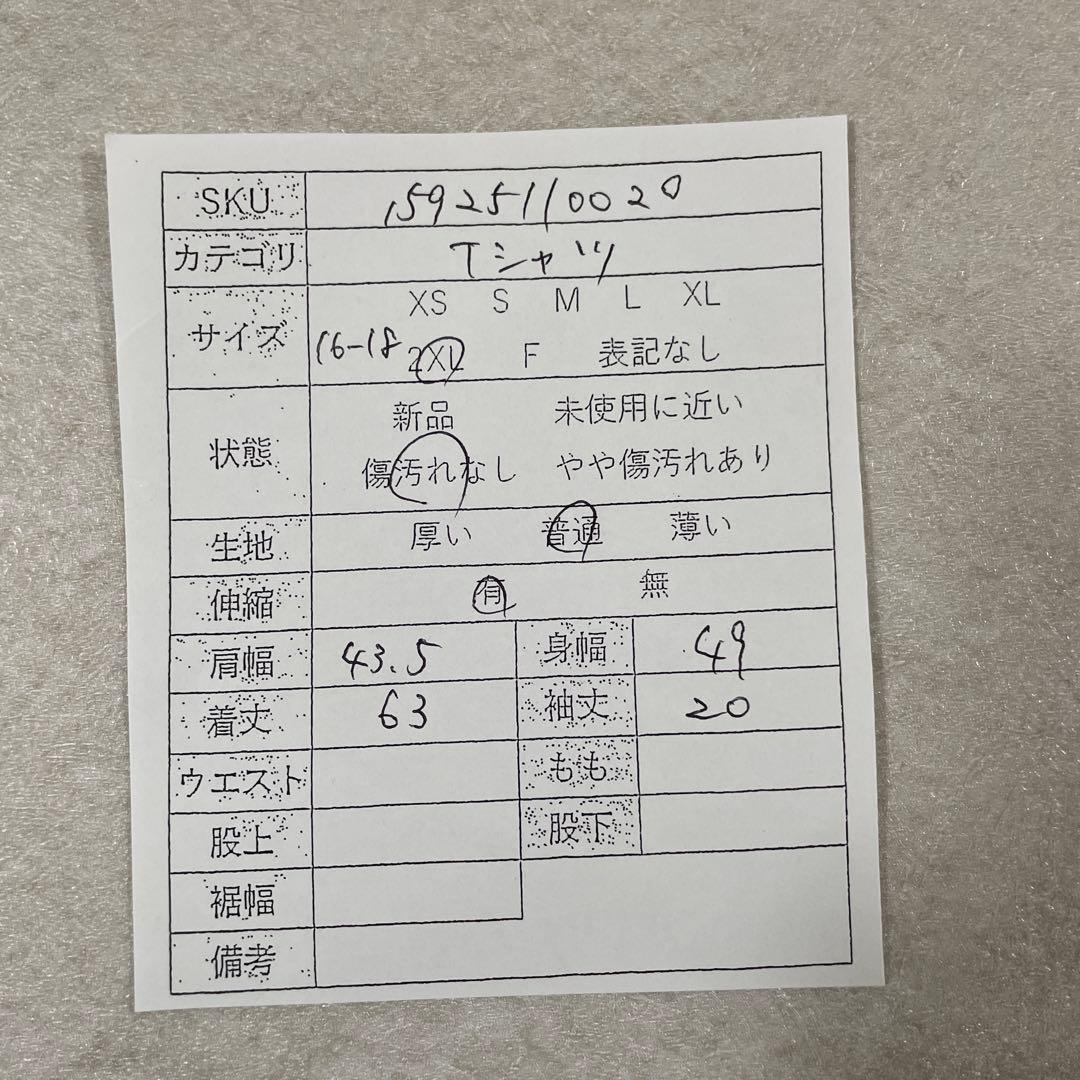 SKU 15925110020
カテゴリ Tシャツ
サイズ XS S M L XL
16-18 2XL F 表記なし
状態 新品 未使用に近い
傷汚れなし やや傷汚れあり
生地 厚い 普通 薄い
伸縮 有 無
肩幅 43.5 身幅 49
着丈 63 袖丈 20
ウエスト もも
股上 股下
裾幅
備考